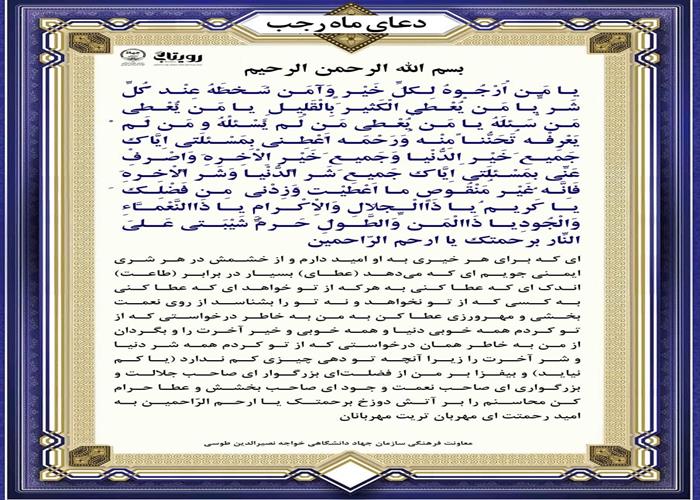 دعای ماه رجب
رویناب
بسم الله الرحمن الرحیم
یا مَن أرْجُوهُ لِکُلِّ خَیْرٍ وَآمَنُ سَخَطَهُ عِنْدَ کُلِّ
شَرٍّ یا مَنْ یُعْطِی الْکَثِیرَ بِالْقَلِیلِ یا مَنْ یُعْطِی
مَنْ سَئَلَهُ یا مَنْ یُعْطِی مَنْ لَمْ یَسْئَلْهُ وَ مَنْ لَمْ
یَعْرِفْهُ تَحَنُّناً مِنْهُ وَرَحْمَةً اَعْطِنِی بِمَسْئَلَتِی اِیَّاکَ
جَمِیعَ خَیْرِ الدُّنْیا وَجَمِیعَ خَیْرِ الْآخِرَةِ وَاصْرِفْ
عَنِّی بِمَسْئَلَتِی اِیَّاکَ جَمِیعَ شَرِّ الدُّنْیا وَشَرِّ الْآخِرَةِ
فَاِنَّهُ غَیْرُ مَنْقُوصٍ ما اَعْطَیْتَ وَزِدْنِی مِنْ فَضْلِکَ
یا کَرِیمُ یا ذَاالْجَلالِ وَالْاِکْرامِ یا ذَاالنَّعْمَاءِ
وَالْجُودِیا ذَاالْمَنِّ وَالطَّوْلِ حَرِّمْ شَیْبَتِی عَلَی
النَّارِ برحمتک یا ارحم الرّاحمین
ای که برای هر خیری به او امید دارم و از خشمش در هر شری
ایمنی جویم ای که می‌دهد (عطای) بسیار در برابر (طاعت)
اندک ای که عطا کنی به هرکه از تو خواهد ای که عطا کنی
به کسی که از تو نخواهد و نه تو را بشناسد از روی نعمت
بخشی و مهرورزی عطا کن به من به خاطر درخواستی که از
تو کردم همه خوبی دنیا و همه خوبی و خیر آخرت را و بگردان
از من به خاطر همان درخواستی که از تو کردم همه شر دنیا
و شر آخرت را زیرا آنچه تو دهی چیزی کم ندارد (یا کم
نیاید) و بیفزا بر من از فضلت‌ای بزرگوار ای صاحب جلالت و
بزرگواری ای صاحب نعمت و جود ای صاحب بخشش و عطا حرام
کن محاسنم را بر آتش دوزخ برحمتک یا ارحم الرّاحمین به
امید رحمتت ای مهربان تریت مهربانان
معاونت فرهنگی سازمان جهاد دانشگاهی خواجه نصیرالدین طوسی